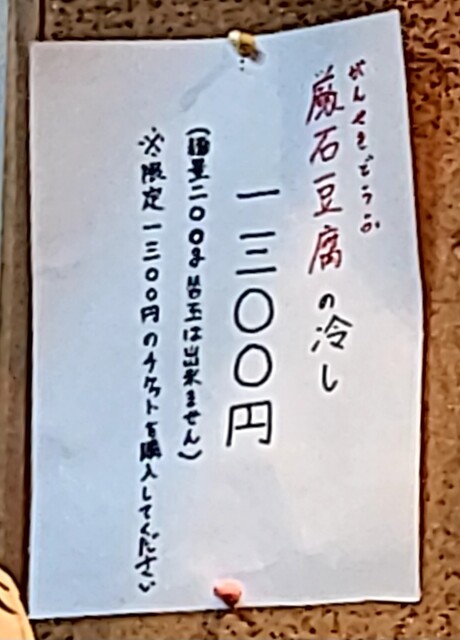 がんせきどうふ
巌石豆腐の冷し
一三〇〇円
(麺量二〇〇g 替玉は出来ません)
※限定一三〇〇円のチケットを購入してください